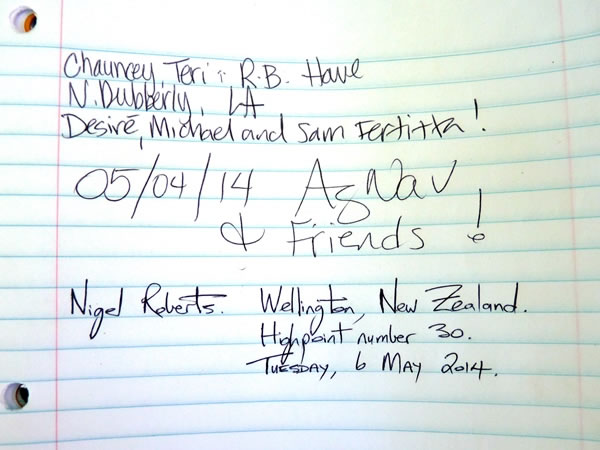 Chauncey, Teri & R.B. Have
N. Dubberly, LA
Desiré, Michael and Sam Fertitta!
05/04/14 AgNav
& Friends!
Nigel Roberts. Wellington, New Zealand.
Highpoint number 30.
Tuesday, 6 May 2014.